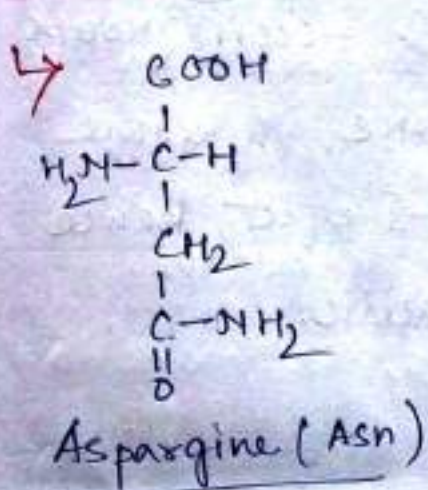 COOH
H2N-C-H
CH2
C-NH2
O
Aspargine (Asn)